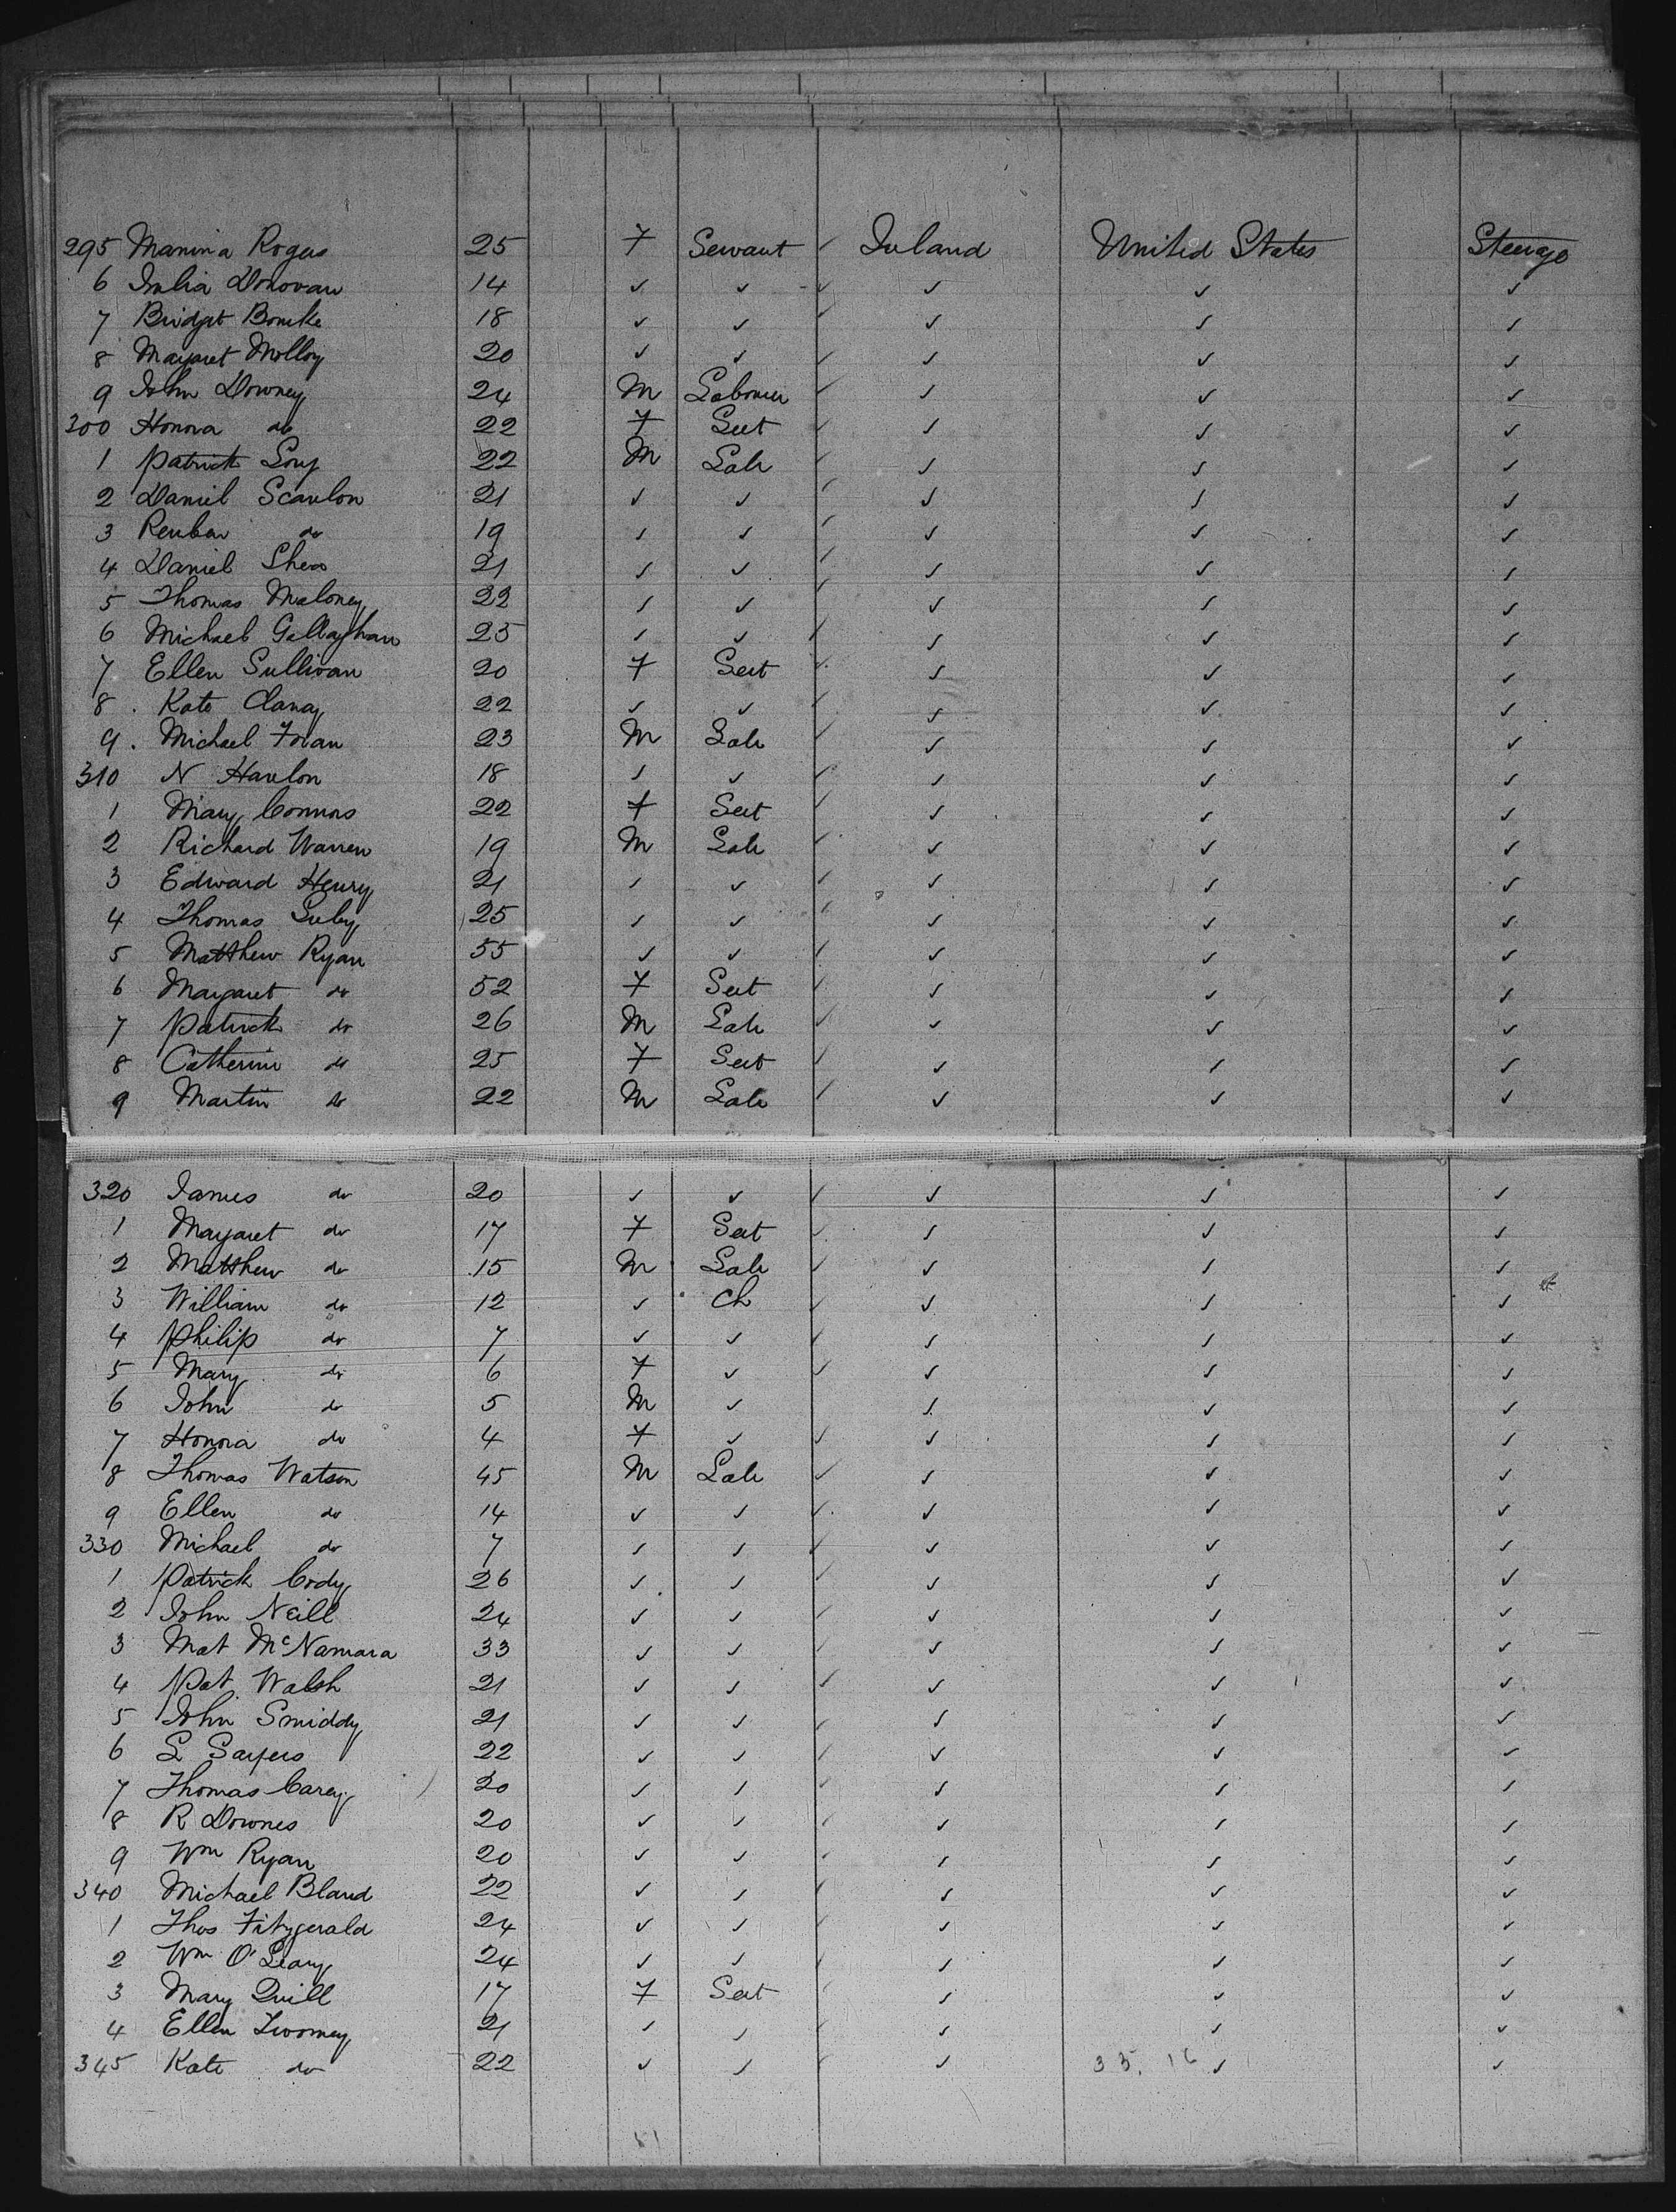 295 Manina Rogers 25 F Servant ✓ Ireland United States Steerage
6 Julia Donovan 14 ✓ ✓ ✓ ✓ ✓ ✓
7 Bridget Bourke 18 ✓ ✓ ✓ ✓ ✓ ✓
8 Margaret Molloy 20 ✓ ✓ ✓ ✓ ✓ ✓
9 John Downey 24 M Labourer ✓ ✓ ✓ ✓
300 Honora do 22 F Sert ✓ ✓ ✓ ✓
1 Patrick 22 M Lab ✓ ✓ ✓ ✓
2 Daniel Scanlon 21 ✓ ✓ ✓ ✓ ✓ ✓
3 Reuben do 19 ✓ ✓ ✓ ✓ ✓ ✓
4 Daniel Shea 21 ✓ ✓ ✓ ✓ ✓ ✓
5 Thomas Maloney 22 ✓ ✓ ✓ ✓ ✓ ✓
6 Michael Gallaghan 25 ✓ ✓ ✓ ✓ ✓ ✓
7 Ellen Sullivan 20 F Sert ✓ ✓ ✓ ✓
8 . Kate Clancy 22 ✓ ✓ ✓ ✓ ✓ ✓
9 . Michael Foran 23 M Lab ✓ ✓ ✓ ✓
310 N Hanlon 18 ✓ ✓ ✓ ✓ ✓ ✓
1 Mary Connors 22 F Sert ✓ ✓ ✓ ✓
2 Richard Warren 19 M Lab ✓ ✓ ✓ ✓
3 Edward Henry 21 ✓ ✓ ✓ ✓ ✓ ✓
4 Thomas Luby 25 ✓ ✓ ✓ ✓ ✓ ✓
5 Matthew Ryan 55 ✓ ✓ ✓ ✓ ✓ ✓
6 Margaret do 52 F Sert ✓ ✓ ✓ ✓
7 Patrick do 26 M Lab ✓ ✓ ✓ ✓
8 Catherine do 25 F Sert ✓ ✓ ✓ ✓
9 Martin do 22 M Lab ✓ ✓ ✓ ✓
320 James do 20 ✓ ✓ ✓ ✓ ✓ ✓
1 Margaret do 17 F Sert ✓ ✓ ✓ ✓
2 Matthew do 15 M Lab ✓ ✓ ✓ ✓
3 William do 12 ✓ Ch ✓ ✓ ✓ ✓
4 Philip do 7 ✓ ✓ ✓ ✓ ✓ ✓
5 Mary do 6 F ✓ ✓ ✓ ✓ ✓
6 John do 5 M ✓ ✓ ✓ ✓
7 Honora do 4 F ✓ ✓ ✓ ✓ ✓
8 Thomas Watson 45 M Lab ✓ ✓ ✓ ✓
9 Ellen do 14 ✓ ✓ ✓ ✓ ✓ ✓
330 Michael do 7 ✓ ✓ ✓ ✓ ✓ ✓
1 Patrick Cody 26 ✓ ✓ ✓ ✓ ✓ ✓
2 John Neill 24 ✓ ✓ ✓ ✓ ✓ ✓
3 Mat McNamara 33 ✓ ✓ ✓ ✓ ✓ ✓
4 Pat Walsh 21 ✓ ✓ ✓ ✓ ✓ ✓
5 John Smiddy 21 ✓ ✓ ✓ ✓ ✓ ✓
6 L Sayers 22 ✓ ✓ ✓ ✓ ✓ ✓
7 Thomas Carey 20 ✓ ✓ ✓ ✓ ✓ ✓
8 R Downes 20 ✓ ✓ ✓ ✓ ✓ ✓
9 Wm Ryan 20 ✓ ✓ ✓ ✓ ✓ ✓
340 Michael Bland 22 ✓ ✓ ✓ ✓ ✓ ✓
1 Thos Fitzgerald 24 ✓ ✓ ✓ ✓ ✓ ✓
2 Wm O'Leary 24 ✓ ✓ ✓ ✓ ✓ ✓
3 Mary Quill 17 F Sert ✓ ✓ ✓ ✓
4 Ellen Twomey 21 ✓ ✓ ✓ ✓ ✓ ✓
345 Kate do 22 ✓ ✓ ✓ ✓ ✓ ✓